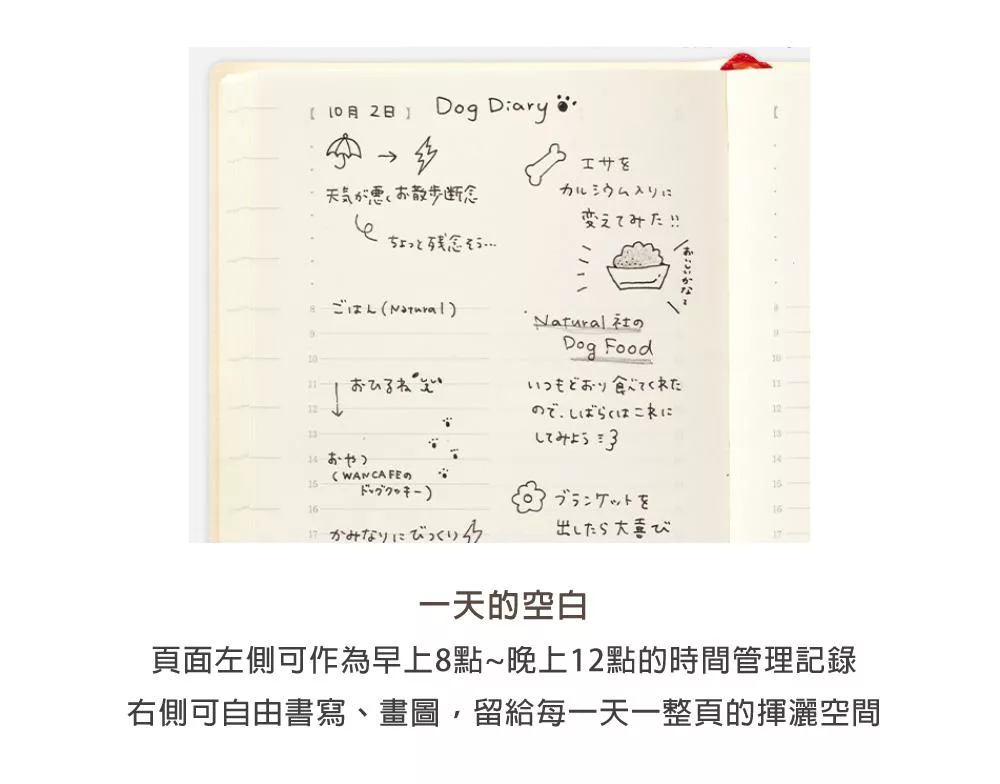 [ 10月 2日 ] Dog Diary
天気が悪くお散歩断念
ちょっと残念そう…
8 ごはん(Natural)
9
10
11 おひるね
12
13
14 おやつ
(WANCAFEの
15 ドッグクッキー)
16
17 かみなりにびっくり
エサを
カルシウム入りに
変えてみた!!
おいしいかな?
Natural 社の
Dog Food
いつもどおり食べてくれた
ので、しばらくはこれに
してみよう
ブランケットを
出したら大喜び
[
8
9
10
11
12
13
14
15
16
17
一天的空白
頁面左側可作為早上8點~晚上12點的時間管理記錄
右側可自由書寫、畫圖，留給每一天一整頁的揮灑空間